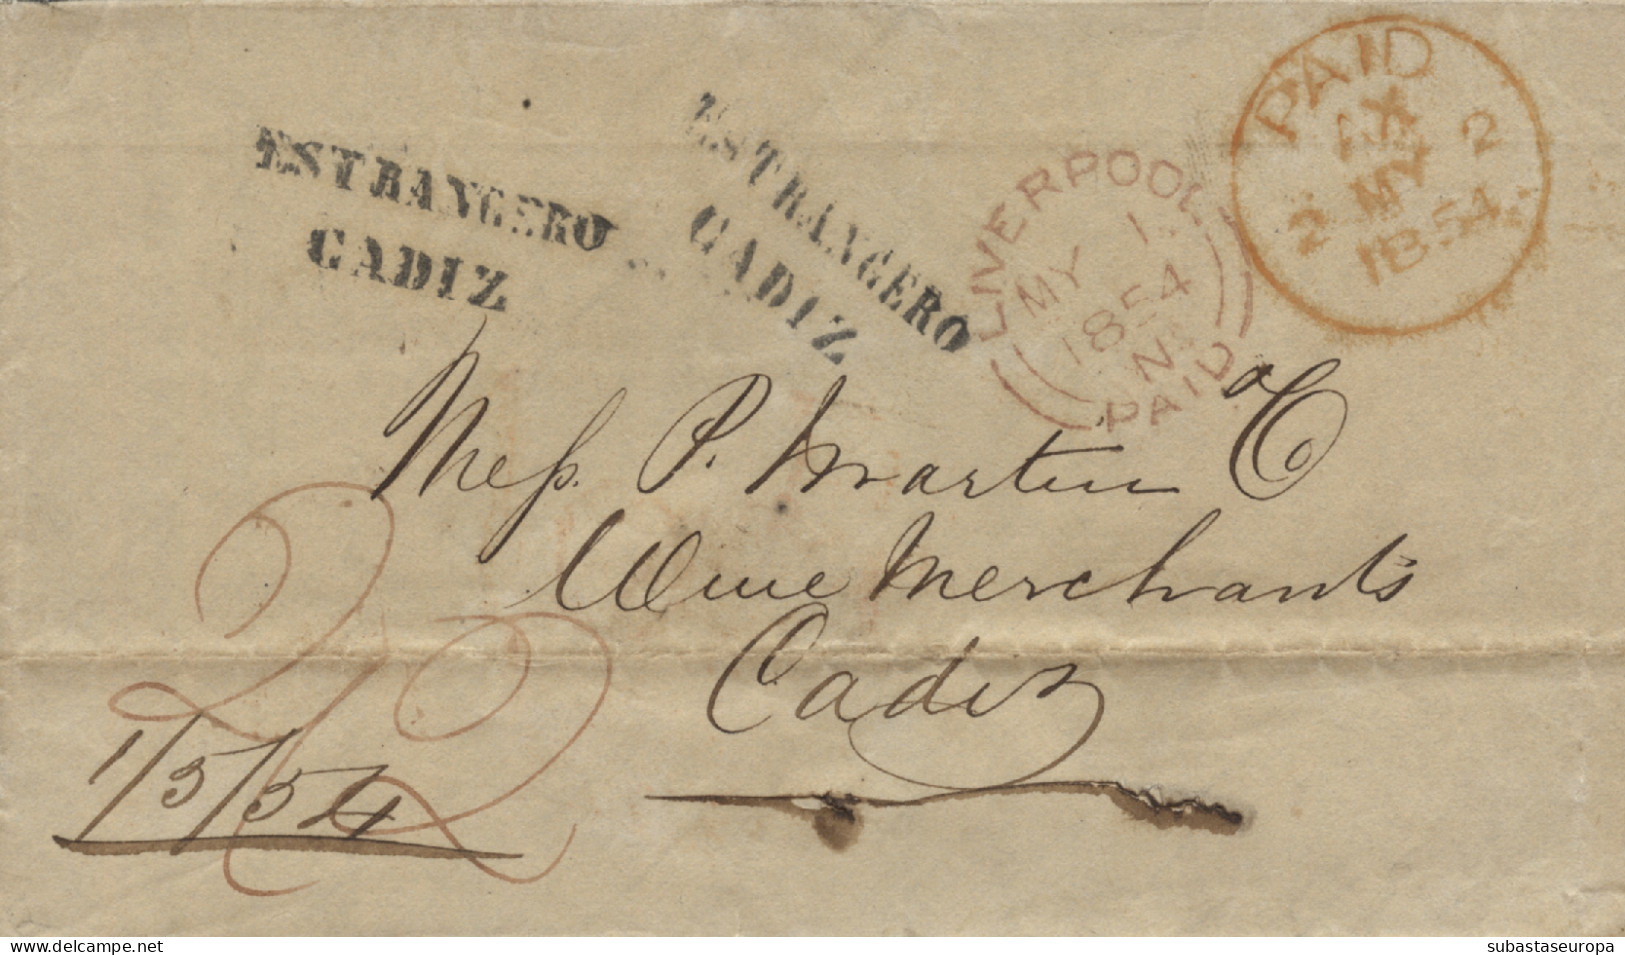 ESTRANGERO
CADIZ
ESTRANGERO
CADIZ
LIVERPOOL
MY 1
1854
PAID
PAID
2 MY 2
1854
Mess. P. Martin & Co
Wine Merchants
Cadiz
1/5/54
delcampe.net
subastaseuropa